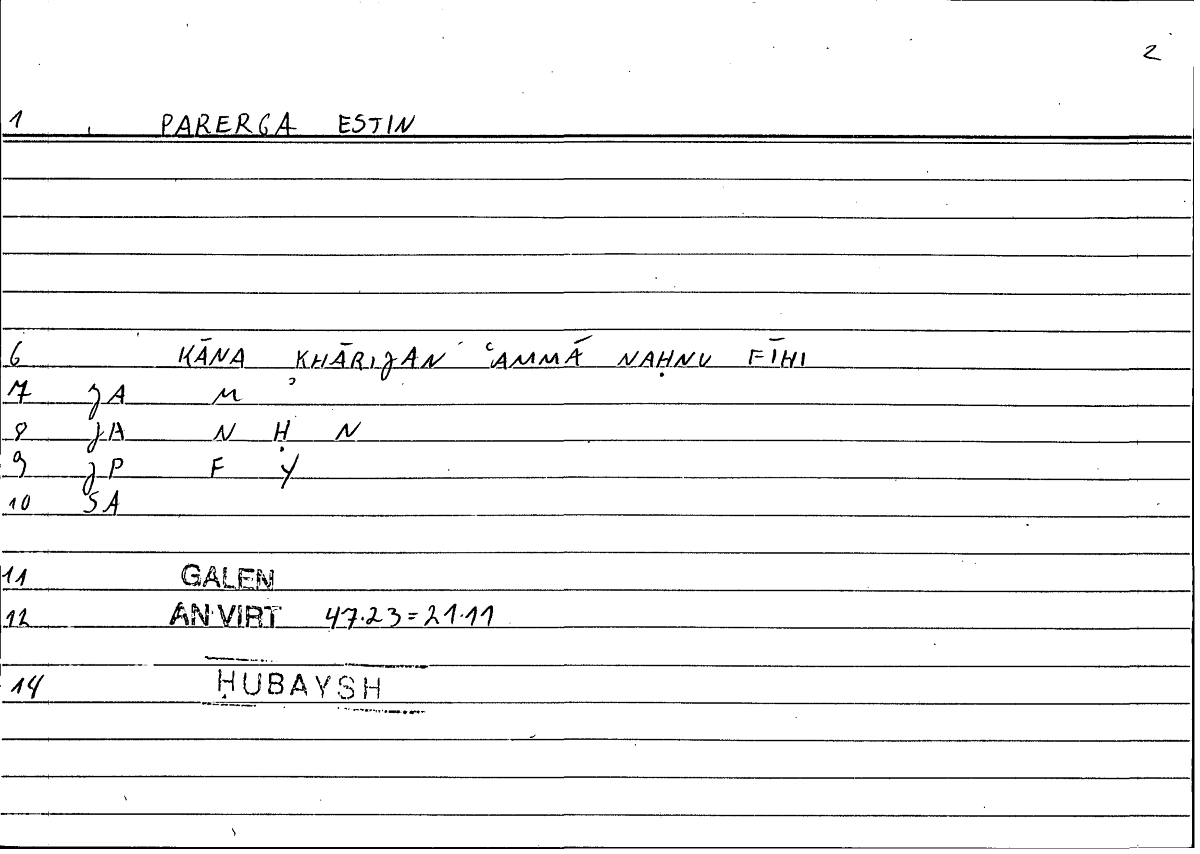 2
1 PARERGA ESTIN
6 KĀNA KHĀRIJAN ʿAMMĀ NAḤNU FĪHI
7 JA ʾM
8 JA N Ḥ N
9 JP F Y
10 SA
11 GALEN
12 AN VIRT 47.23=21.11
14 ḤUBAYSH